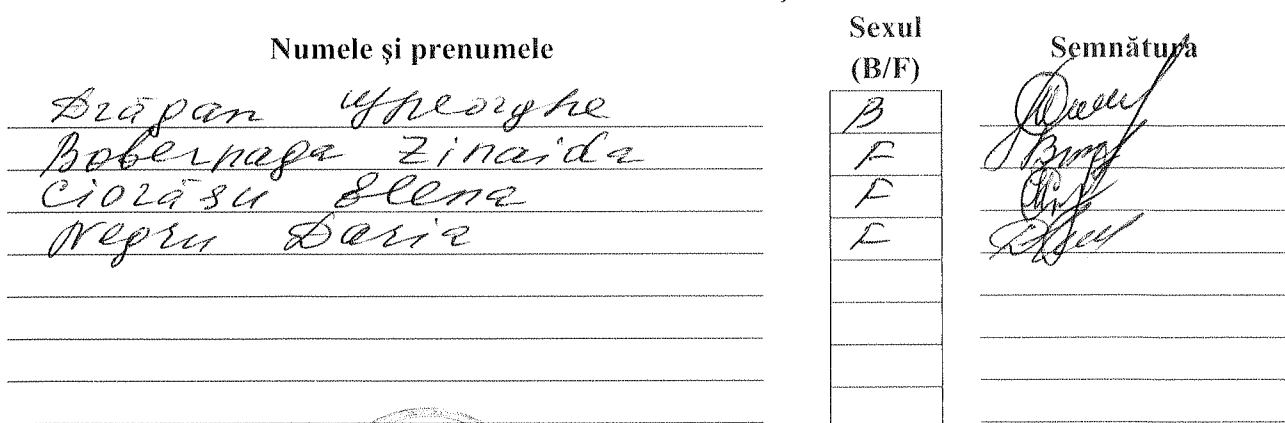 Numele și prenumele Sexul (B/F) Semnătura
Drăgan Gheorghe B
Bobernaga Zinaida F
Ciorăsu Elena F
Negru Daria F